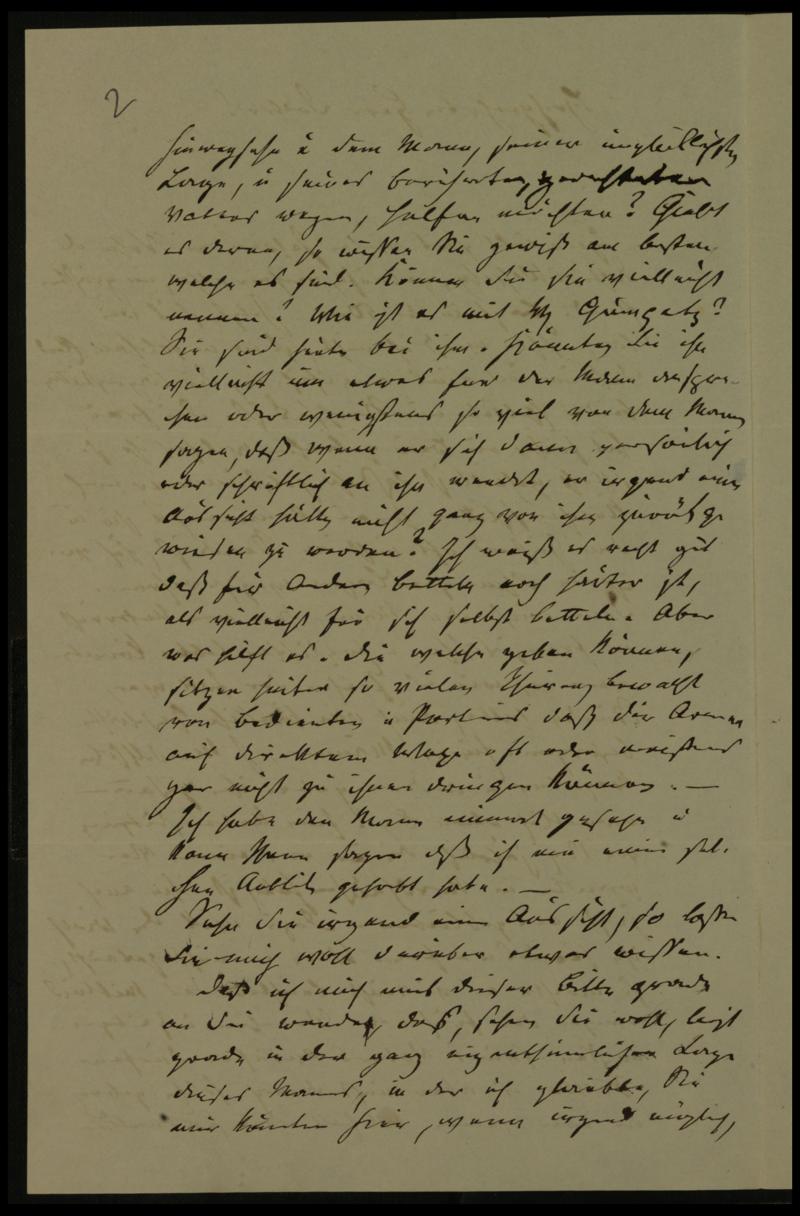 2
hinwegsehe u dem Mann, seiner unglücklichen
Lage, u seines berühmten,
Vaters wegen, helfen möchten? Giebt
es deren, so wissen Sie gewiß am besten
welche es sind. Können Sie sie vielleicht
nennen? Wie ist es mit
Sie sind heute bei ihm. Könnten Sie ihn
vielleicht um etwas für den
oder wenigstens so viel von dem Mann
sagen, daß wenn er sich dann persönlich
oder schriftlich an ihn wendet, er irgend eine
Aussicht hätte nicht ganz von ihm zurückge
wiesen zu werden? Ich weiß es recht gut
daß für Andere betteln noch härter ist,
als vielleicht für sich selbst betteln. Aber
was hilft es. Die welche geben können,
sitzen hinter so vielen Thüren, bewacht
von Bedienten u Portiers daß die Armen
auf direktem Wege oft oder meistens
gar nicht zu ihnen dringen können. —
Ich habe den Mann einmal gesehen u
kann Ihnen sagen daß ich nie einen sol-
chen Anblick gehabt habe. —
Sehen Sie irgend eine Aussicht, so lassen
Sie mich wohl darüber etwas wissen.
Daß ich mich mit dieser Bitte grade
an Sie wende, das, sehen Sie wohl, liegt
grade in der ganz eigenthümlichen Lage
dieses Mannes, in der ich glaubte, Sie
mir könnten hier, wenn irgend möglich,